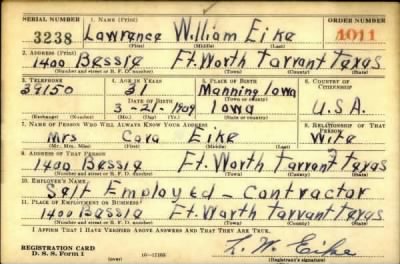 SERIAL NUMBER 1. NAME (Print) ORDER NUMBER
3238 Lawrence William Eike 1011
(First) (Middle) (Last)
2. ADDRESS (Print)
1400 Bessie Ft. Worth Tarrant Texas
(Number and street or R. F. D. number) (Town) (County) (State)
3. TELEPHONE 4. AGE IN YEARS 5. PLACE OF BIRTH 6. COUNTRY OF CITIZENSHIP
39150 31 Manning Iowa
DATE OF BIRTH (Town or county)
3-21-1909 Iowa U.S.A.
(Exchange) (Number) (Mo.) (Day) (Yr.) (State or country)
7. NAME OF PERSON WHO WILL ALWAYS KNOW YOUR ADDRESS 8. RELATIONSHIP OF THAT PERSON
Mrs Cora Eike Wife
(Mr., Mrs., Miss) (First) (Middle) (Last)
9. ADDRESS OF THAT PERSON
1400 Bessie Ft. Worth Tarrant Texas
(Number and street or R. F. D. number) (Town) (County) (State)
10. EMPLOYER'S NAME
Self Employed - Contractor
11. PLACE OF EMPLOYMENT OR BUSINESS
1400 Bessie Ft. Worth Tarrant Texas
(Number and street or R. F. D. number) (Town) (County) (State)
I AFFIRM THAT I HAVE VERIFIED ABOVE ANSWERS AND THAT THEY ARE TRUE.
REGISTRATION CARD
D. S. S. Form 1 (over) L. W. Eike
(Registrant's signature)